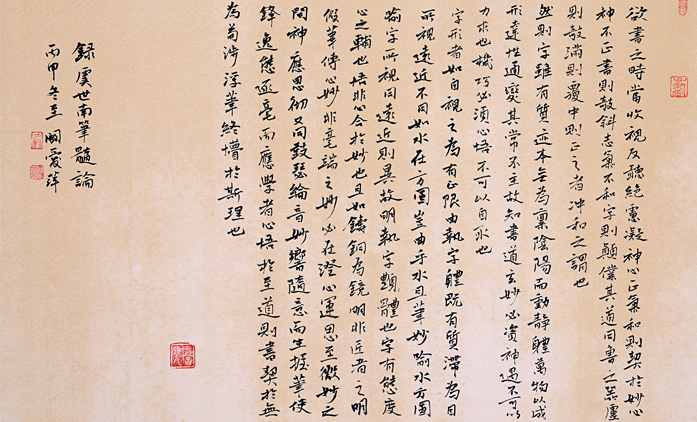 欲書之時當收視反聽絕慮凝神心正氣和則契於妙心
神不正書則攲斜志氣不和字則顛仆其道同魯之器虛
則攲滿則覆中則正之者冲和之謂也
然則字雖有質迹本無為稟陰陽而動靜體萬物以成
形達性通變其常不主故知書道玄妙必資神遇不可以
力求也機巧必須心悟不可以目取也
字形者如目視之為有止限由執字體既有質滯為目
所視遠近不同如水在方圓豈由乎水且筆妙喻水方圓
喻字所視同遠近則異故明執字體也字有態度
心之輔也悟非心合於妙也且如鑄銅為鏡明非匠者之明
假筆傳心妙非毫端之妙必在澄心運思至微妙之
間神應思徹又同鼓瑟綸音妙響隨意而生握筆使
鋒逸態逐毫而應學者心悟於至道則書契於無
為苟涉浮華終懵於斯理也
錄虞世南筆髓論
丙申冬至愛萍